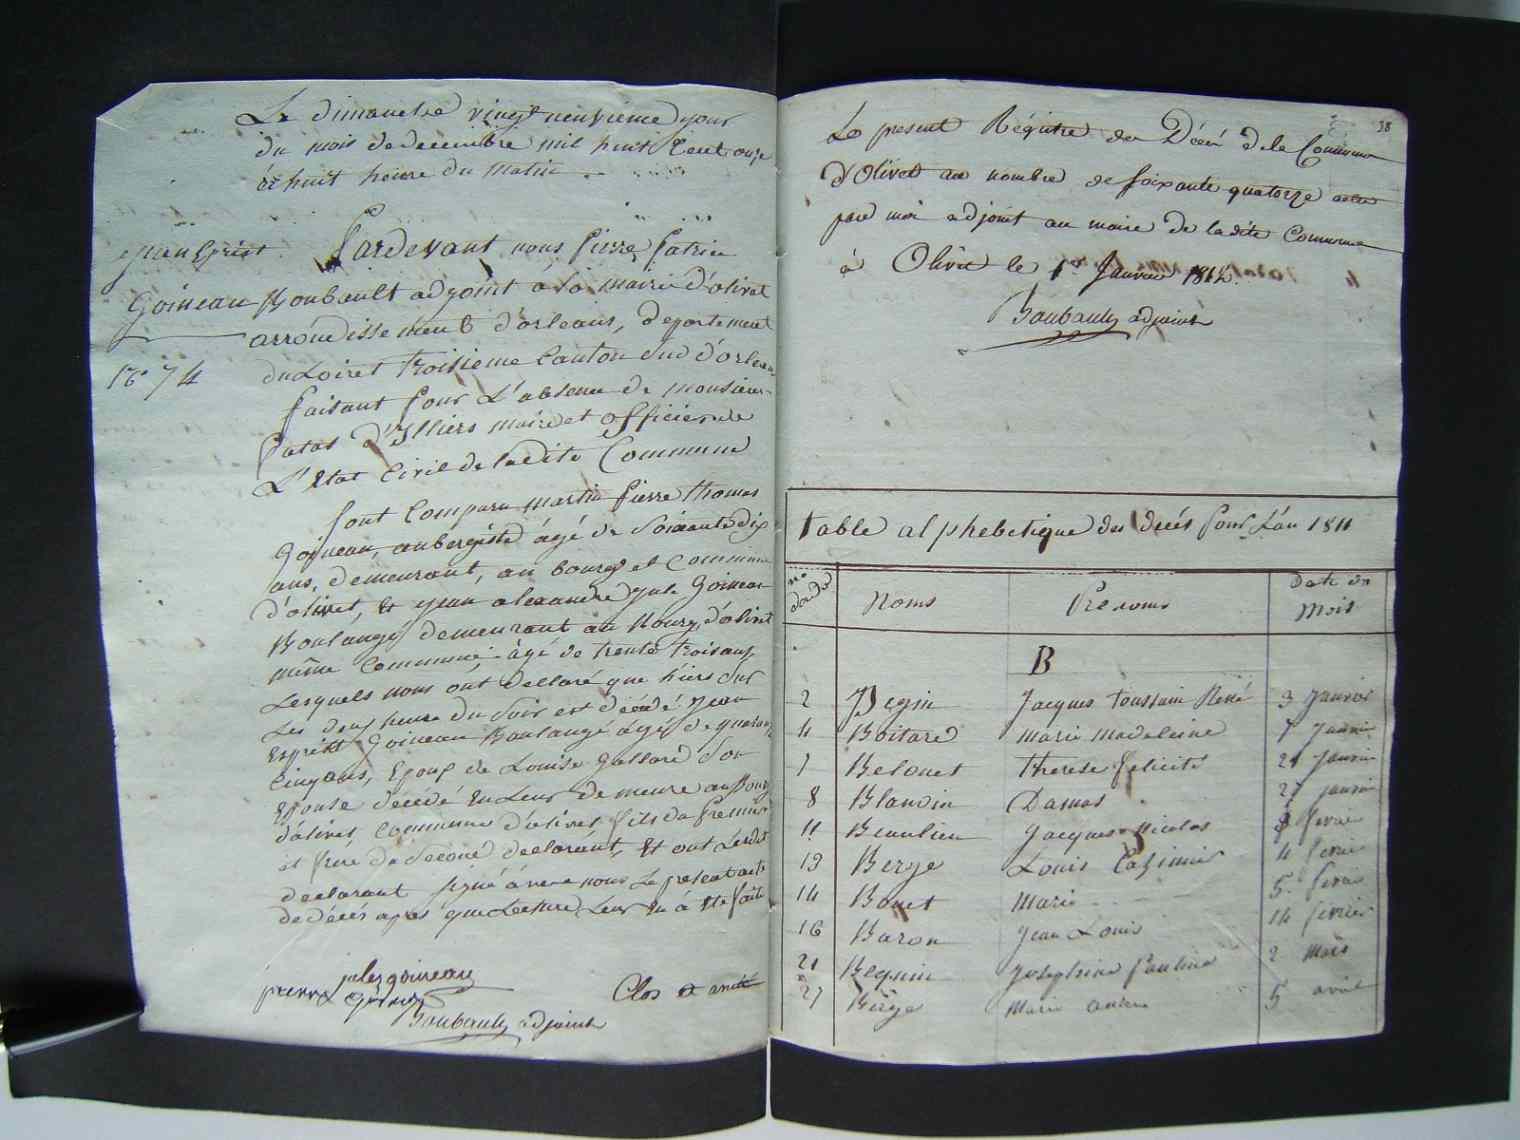 Le dimanche vingt neuvieme jour
du mois de decembre mil huit Cent onze
à huit heure du matin
jean Esprist
Goineau
N° 74
Pardevant nous Pierre Patrice
Boubault adjoint à la mairie d'olivet
arrondissement d'orleans, departement
du Loiret troisieme Canton sud d'orleans
faisant pour L'absence de monsieur
Patas d'Illiers maire et officier de
L'Etat Civil de la dite Commune
sont Comparu martin Pierre thomas
Goineau, aubergiste âgé de Soixante dix
ans, demeurant, au bourg et Commune
d'olivet, et jean alexandre jule Goineau
Boulangé demeurant au Bourg d'olivet
même Commune âgé de trente trois ans
Lesquels nous ont declaré que hiers sur
Les deux heure du Soir est décédé jean
Esprist Goineau Boulangé âgé de quarante
Cinq ans, Epoux de Louise Gallard son
Epouse décédé En Leur demeure au Bourg
d'olivet, Commune d'olivet fils du Premier
et frere du Second declarant, Et ont Lesdit
declarant signé avec nous Le present acte
de décès apres que Lecture Leur En à Eté faite
jules goineau
pierre goineau
Clos et arrêté
Boubault adjoint
38
Le present Régistre des Décès de la Commune
d'Olivet au nombre de soixante quatorze actes
par moi adjoint au maire de la dite Commune
à Olivet le 1er Janvier 1812.
Boubault adjoint
table alphebetique des decés pour L'an 1811
no d'ordre Noms Prenoms Date du mois
B
2 Begin Jacques toussain René 3 Janvier
4 Boitard marie madeleine 7 Janvier
7 Belouet therese felicité 21 Janvier
8 Blandin Damas 27 janvier
11 Beaulieu Jacques Nicolas fevrier
13 Berge Louis Casimir 4 fevrier
14 Bouet marie 5 fevrier
16 Baron Jean Louis 14 fevrier
21 Beguin Josephine Pauline 2 mars
27 Berge marie 5 avril